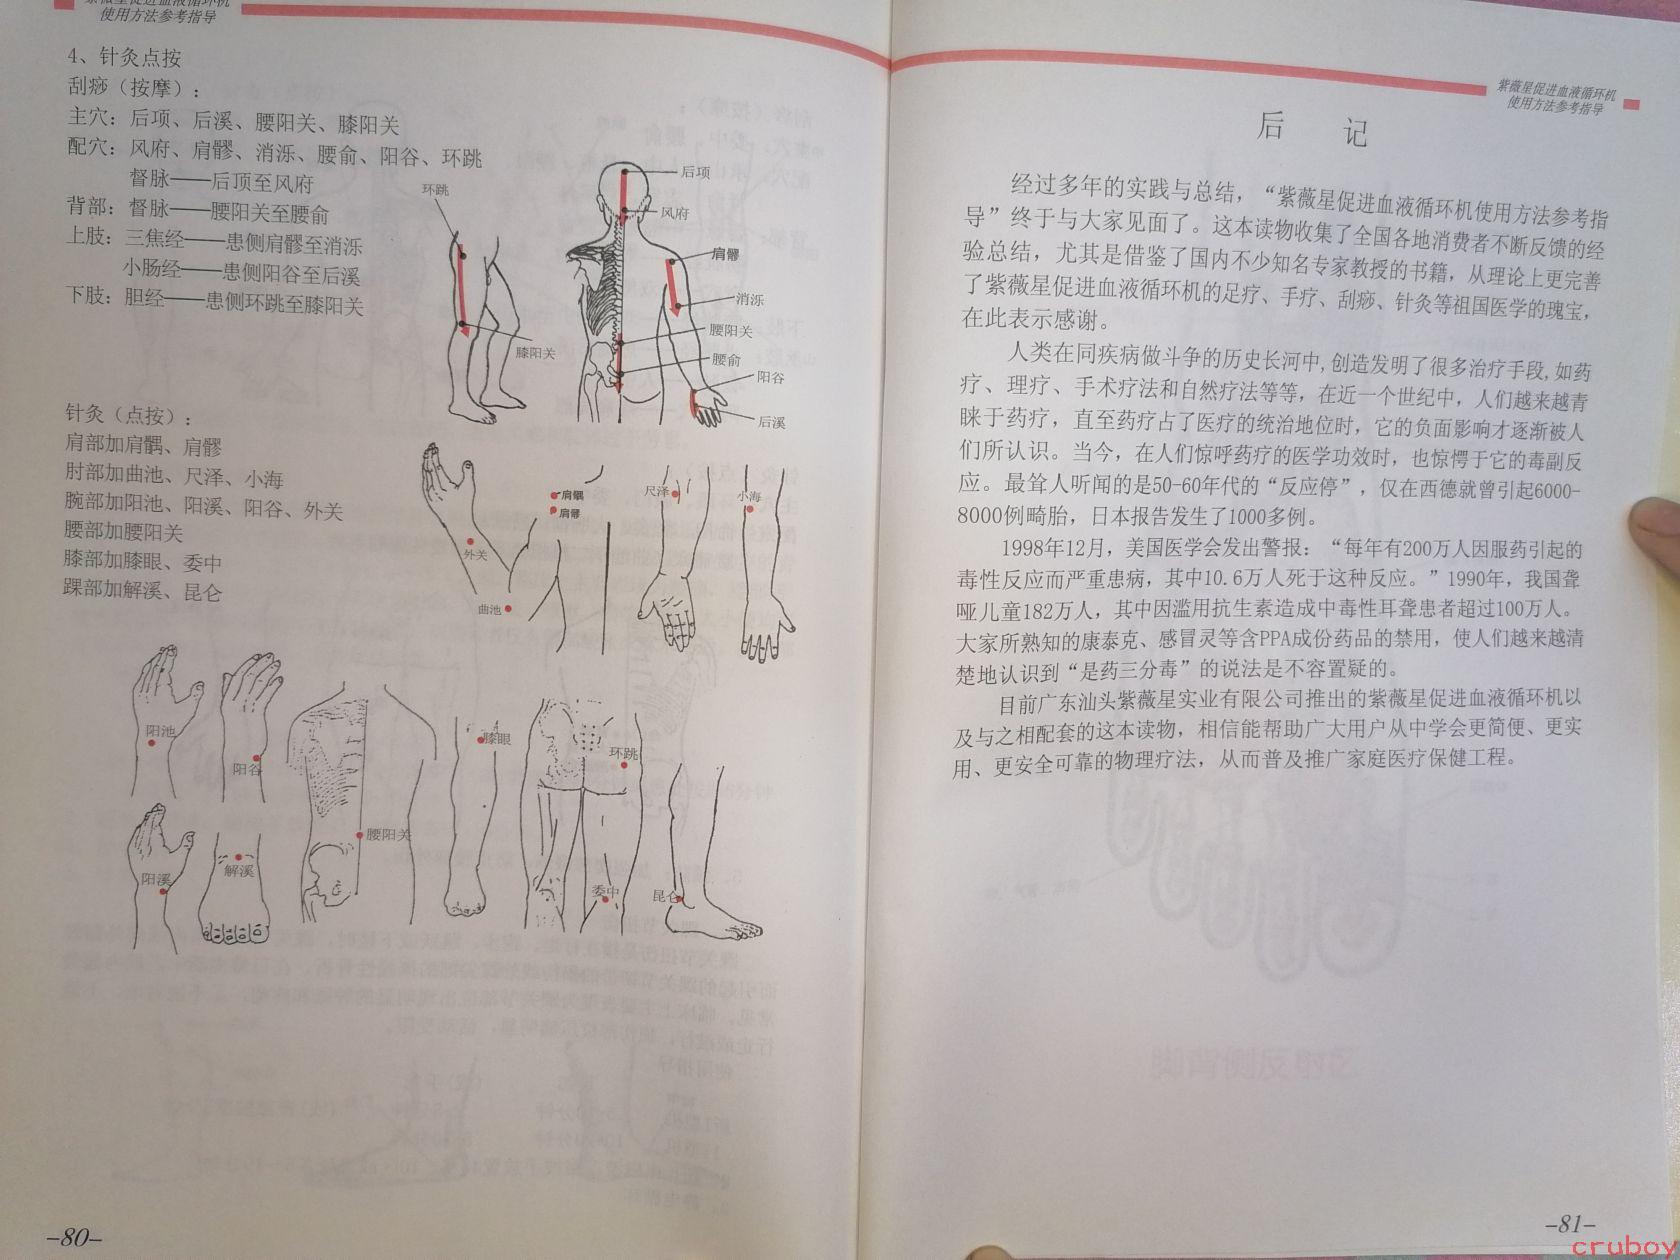 紫薇星促进血液循环机
使用方法参考指导
4、针灸点按
刮痧（按摩）：
主穴：后项、后溪、腰阳关、膝阳关
配穴：风府、肩髎、消泺、腰俞、阳谷、环跳
督脉——后顶至风府
背部：督脉——腰阳关至腰俞
上肢：三焦经——患侧肩髎至消泺
小肠经——患侧阳谷至后溪
下肢：胆经——患侧环跳至膝阳关
环跳
膝阳关
后项
风府
肩髎
消泺
腰阳关
腰俞
阳谷
后溪
针灸（点按）：
肩部加肩髃、肩髎
肘部加曲池、尺泽、小海
腕部加阳池、阳溪、阳谷、外关
腰部加腰阳关
膝部加膝眼、委中
踝部加解溪、昆仑
外关
曲池
肩髃
肩髎
尺泽
小海
阳池
阳谷
腰阳关
膝眼
环跳
阳溪
解溪
委中
昆仑
-80-
紫薇星促进血液循环机
使用方法参考指导
后 记
经过多年的实践与总结，“紫薇星促进血液循环机使用方法参考指
导”终于与大家见面了。这本读物收集了全国各地消费者不断反馈的经
验总结，尤其是借鉴了国内不少知名专家教授的书籍，从理论上更完善
了紫薇星促进血液循环机的足疗、手疗、刮痧、针灸等祖国医学的瑰宝，
在此表示感谢。
人类在同疾病做斗争的历史长河中,创造发明了很多治疗手段,如药
疗、理疗、手术疗法和自然疗法等等，在近一个世纪中，人们越来越青
睐于药疗，直至药疗占了医疗的统治地位时，它的负面影响才逐渐被人
们所认识。当今，在人们惊呼药疗的医学功效时，也惊愕于它的毒副反
应。最耸人听闻的是50-60年代的“反应停”，仅在西德就曾引起6000-
8000例畸胎，日本报告发生了1000多例。
1998年12月，美国医学会发出警报：“每年有200万人因服药引起的
毒性反应而严重患病，其中10.6万人死于这种反应。”1990年，我国聋
哑儿童182万人，其中因滥用抗生素造成中毒性耳聋患者超过100万人。
大家所熟知的康泰克、感冒灵等含PPA成份药品的禁用，使人们越来越清
楚地认识到“是药三分毒”的说法是不容置疑的。
目前广东汕头紫薇星实业有限公司推出的紫薇星促进血液循环机以
及与之相配套的这本读物，相信能帮助广大用户从中学会更简便、更实
用、更安全可靠的物理疗法，从而普及推广家庭医疗保健工程。
-81-
cruboy